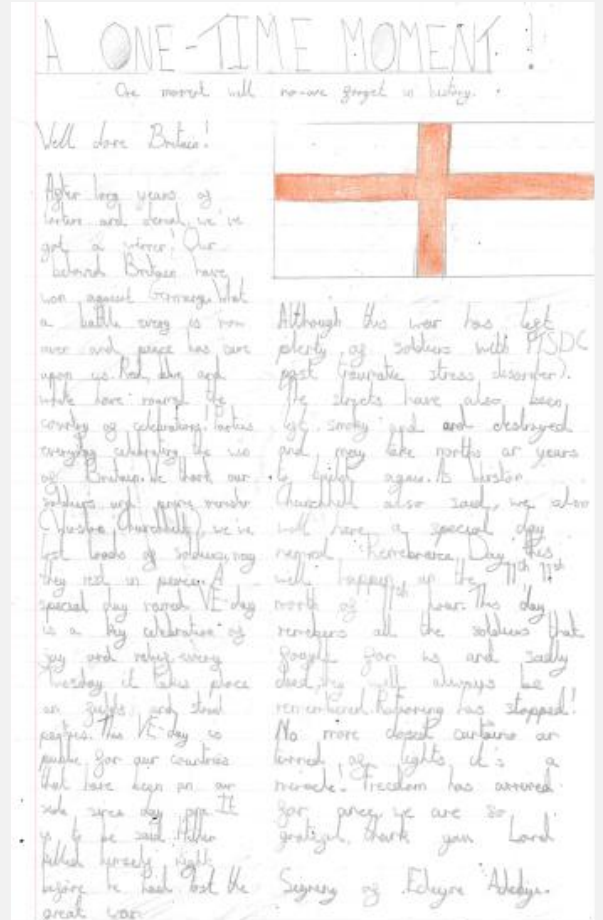 A ONE-TIME MOMENT!
One moment will no-one forget in history.
Well done Britain!
After long years of
torture and denial, we've
got a winner! Our
beloved Britain have
won against Germany. What
a battle every is now
over and peace has came
upon us. Red, blue and
white have roamed the
country of celebrations!
everyday celebrating the win
of Britain. We thank our
soldiers and prime minister
(Winston Churchhill), we've
lost loads of soldiers, may
they rest in peace. A
special day named VE-day
is a key celebration of
joy and relief, every
Tuesday it takes place
on fields and street
parties. This VE-day is
public for our countries
that have been on our
side since day one. It
is to be said Hitler
killed himself right
before he had lost the
great war.
Although this war has left
plenty of soldiers with P(SDC
post traumatic stress disorder).
The streets have also been
left smoky and and destroyed
and may take months or years
to build again. As Winston
Churchhill also said, we also
will have a special day
named Remembrance Day this
will happen on the 11th 11th
month of 11th hour. This day
remembers all the soldiers that
fought for us and sadly
died, they will always be
remembered. Rationing has stopped!
No more closed curtains or
turned of lights, it's a
miracle! Freedom has arrived
for once, we are so
grateful, thank you Lord
Signing of